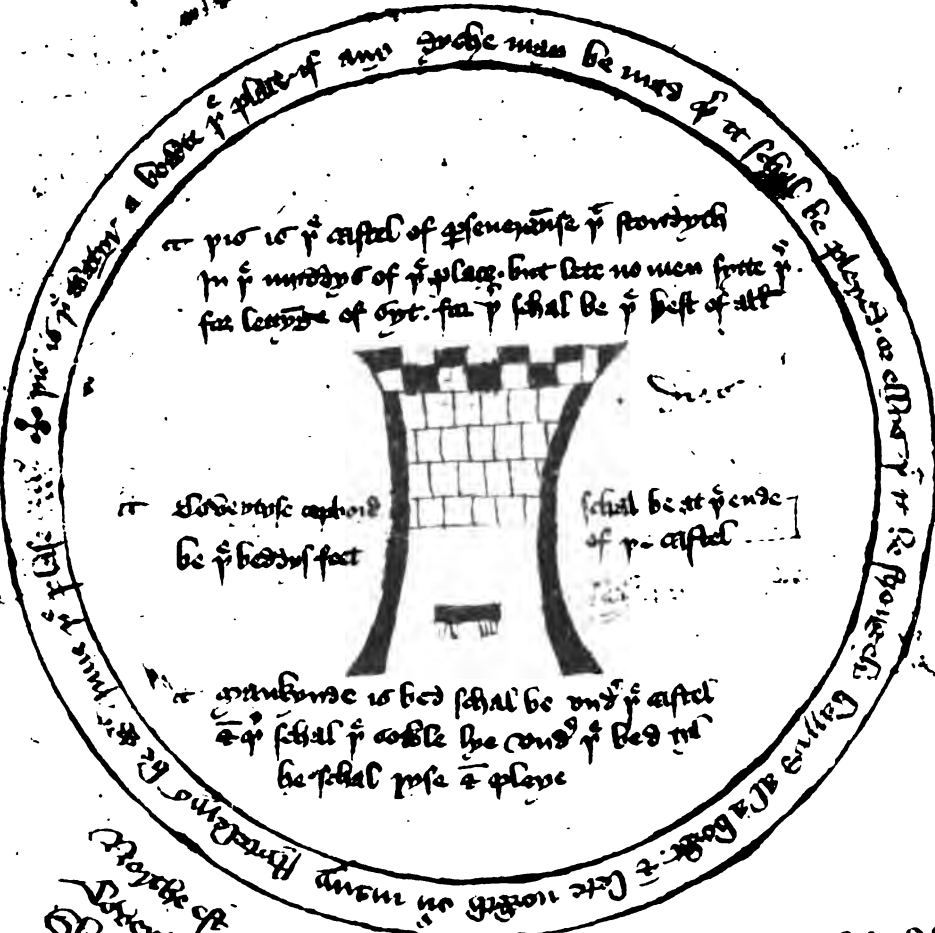 þis is þe watyr a bowte þe place if any dyche may be mad þer it schal be pleyed or ellys þat it be strongely barryd al a bowt & lete nowth ouyr many stytelerys be wyth inne þe plase
þis is þe castel of perseueraunse þat stondyth
In þe myddys of þe place but lete no men sytte þer
for lettynge of syt for þer schal be þe best of all
Coveytyse copbord
be þe beddys feet
schal be at þe ende
of þe castel
Mankynde is bed schal be vndyr þe castel
& þer schal þe sowle lye vndyr þe bed tyl
he schal ryse & pleye